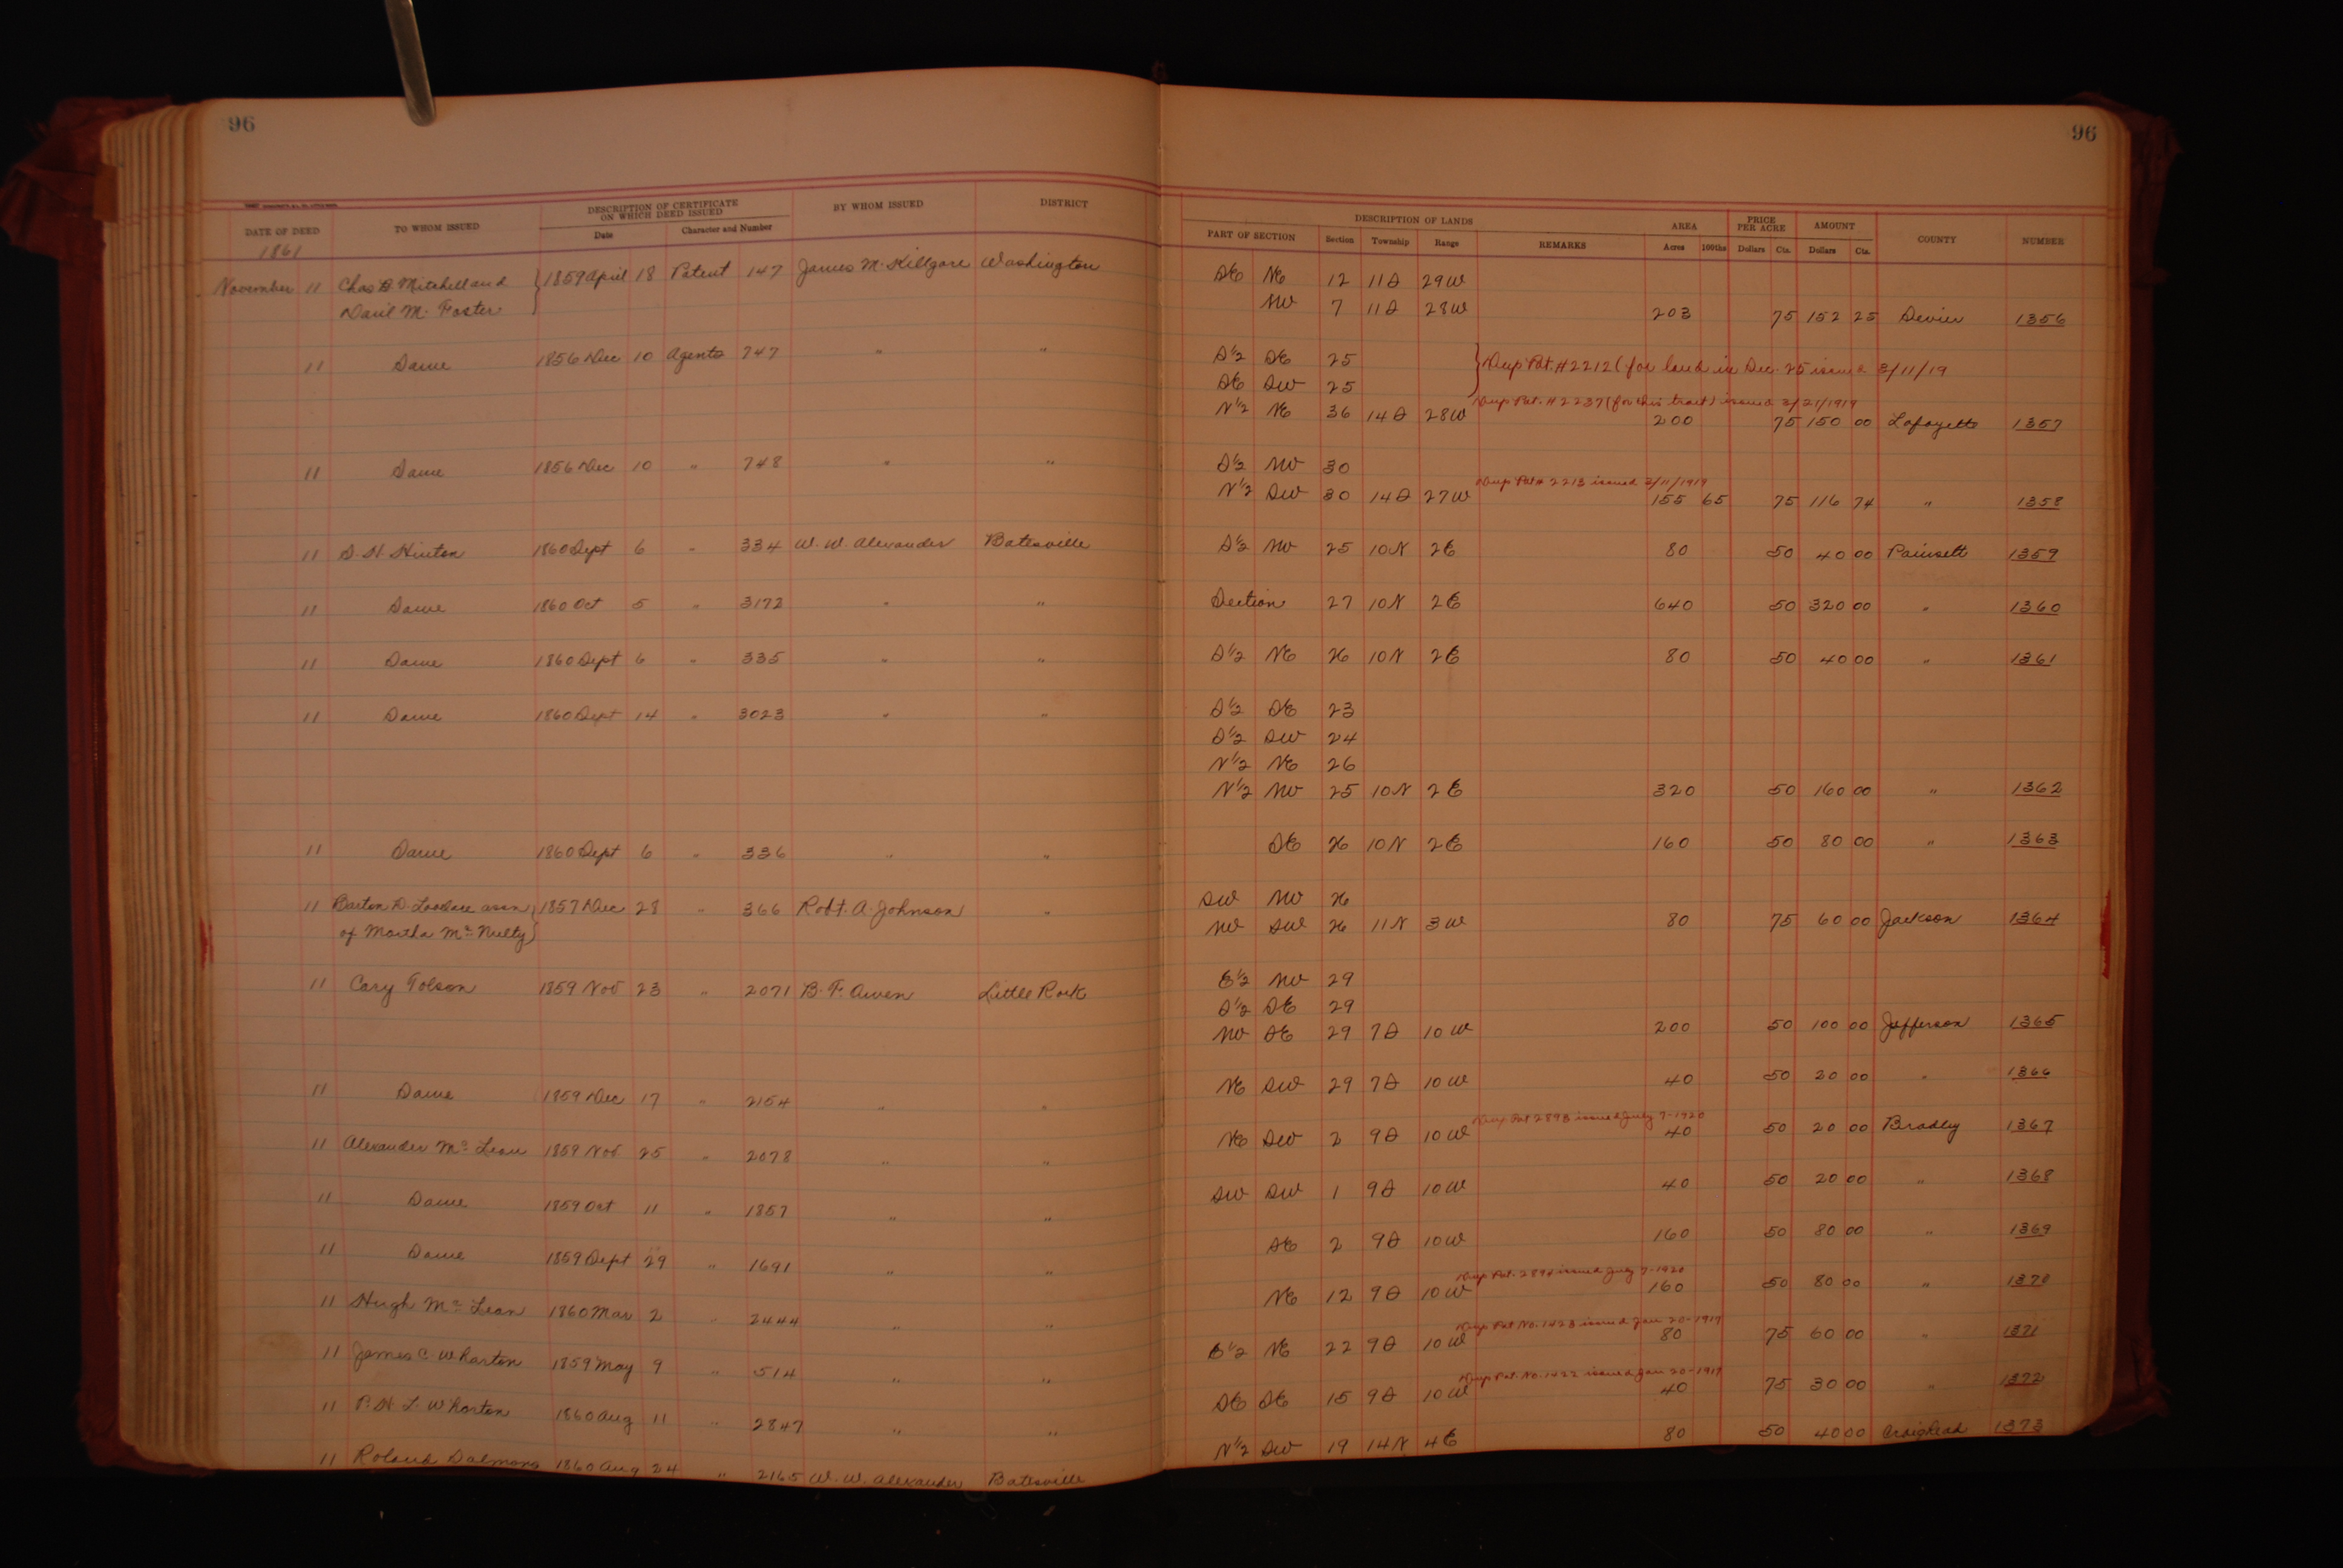 96 96
DATE OF DEED TO WHOM ISSUED DESCRIPTION OF CERTIFICATE ON WHICH DEED ISSUED Date Character and Number BY WHOM ISSUED DISTRICT DESCRIPTION OF LANDS PART OF SECTION Section Township Range REMARKS AREA Acres 100ths PRICE PER ACRE Dollars Cts. AMOUNT Dollars Cts. COUNTY NUMBER
1861
November 11 Chas B. Mitchell and } 1859 April 18 Patent 147 James M. Killgore Washington SE NE 12 11S 29W
Danil M. Foster NW 7 11S 28W 203 75 152 25 Sevier 1356
11 Same 1856 Dec 10 Agents 747 " " S½ SE 25 } Dup Pat. #2212 (for land in Sec. 25 issued 3/11/19
SE SW 25
Dup Pat. #2237 (for this tract) issued 3/21/1919
N½ NE 36 14S 28W 200 75 150 00 Lafayette 1357
11 Same 1856 Dec 10 " 748 " " S½ NW 30
Dup Pat # 2213 issued 3/11/1919
N½ SW 30 14S 27W 155 65 75 116 74 " 1358
11 S. H. Hinton 1860 Sept 6 " 334 W. W. Alexander Batesville S½ NW 25 10N 2E 80 50 40 00 Poinsett 1359
11 Same 1860 Oct 5 " 3172 " " Section 27 10N 2E 640 50 320 00 " 1360
11 Same 1860 Sept 6 " 335 " " S½ NE 26 10N 2E 80 50 40 00 " 1361
11 Same 1860 Sept 14 " 3023 " " S½ SE 23
S½ SW 24
N½ NE 26
N½ NW 25 10N 2E 320 50 160 00 " 1362
11 Same 1860 Sept 6 " 336 " " SE 26 10N 2E 160 50 80 00 " 1363
11 Barton D. assn } 1857 Dec 28 " 366 Robt. A. Johnson " SW NW 26
of Martha McNulty NW SW 26 11N 3W 80 75 60 00 Jackson 1364
11 Cary Tolson 1859 Nov 23 " 2071 B. F. Owen Little Rock E½ NW 29
S½ SE 29
NW SE 29 7S 10W 200 50 100 00 Jefferson 1365
11 Same 1859 Dec 17 " 2154 " " NE SW 29 7S 10W 40 50 20 00 " 1366
Dup Pat 2893 issued July 7-1920
11 Alexander McLean 1859 Nov 25 " 2078 " " NE SW 2 9S 10W 40 50 20 00 Bradley 1367
11 Same 1859 Oct 11 " 1857 " " SW SW 1 9S 10W 40 50 20 00 " 1368
11 Same 1859 Sept 29 " 1691 " " SE 2 9S 10W 160 50 80 00 " 1369
Dup Pat. 2894 issued July 7-1920
11 Hugh McLean 1860 Mar 2 " 2444 " " NE 12 9S 10W 160 50 80 00 " 1370
Dup Pat No. 1423 issued Jan 20-1919
11 James C Wharton 1859 May 9 " 514 " " E½ NE 22 9S 10W 80 75 60 00 " 1371
Dup Pat. No. 1422 issued Jan 20-1919
11 P. H. L. Wharton 1860 Aug 11 " 2847 " " SE SE 15 9S 10W 40 75 30 00 " 1372
11 Roland 1860 Aug 24 " 2165 W. W. Alexander Batesville N½ SW 19 14N 4E 80 50 40 00 Craighead 1373